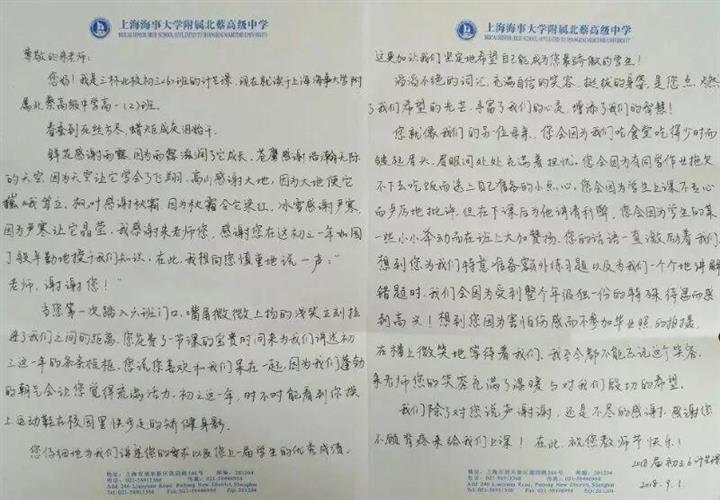 上海海事大学附属北蔡高级中学
尊敬的朱老师：
您好！我是三林北校初三（6）班的计芷课，现在就读于上海海事大学附
属北蔡高级中学高一（2）班。
春蚕到死丝方尽，蜡炬成灰泪始干。
鲜花感谢雨露，因为雨露滋润了它成长，苍鹰感谢浩瀚无际
的天空，因为天空让它学会了飞翔，高山感谢大地，因为大地使它
巍峨耸立，枫叶感谢秋霜，因为秋霜令它深红，冰雪感谢严寒，
因为严寒让它晶莹，我感谢朱老师您，感谢您在这初三一年如园
丁般辛勤地授予我们知识，在此，我想向您慎重地说一声："
老师，谢谢您！"
当您第一次踏入六班门口，嘴角微微上扬的浅笑立刻拉
进了我们之间的距离，您花费了一节课的宝贵时间来为我们讲述初
三这一年的条条框框，您说您喜欢和我们呆在一起，因为我们蓬勃
的朝气会让您觉得充满活力，初三这一年，时不时能看到你换
上运动鞋在校园里快步走的矫健身影。
您仔细地为我们讲述您的要求以及您上一届学生的优秀成绩，
地址：上海市浦东新区莲园路546号 邮编：201204
电话：021-58911368
Add 546 Lianyuan Road, Pudong New District, Shanghai
Tel: 021-58911368 P.C: 201204
上海海事大学附属北蔡高级中学
这更加让我们坚定地希望自己能成为您最骄傲的学生！
滔滔不绝的词汇，充满自信的笑容，挺拔的身姿，是您，点燃
了我们希望的光芒，丰富了我们的心灵，增添了我们的智慧！
您就像我们的另一位母亲，您会因为我们吃食堂吃得少时而
皱起眉头，眉眼间处处充满着担忧，您会因为有同学作业拖欠
不下去吃饭而送上自己准备的小点心，您会因为学生上课不专心
而严厉地批评，但在下课后为他讲清利弊，您会因为学生的某
一些小小举动而在班上大加赞扬，您的话语一直激励着我们，
想到您为我们特意准备额外练习题以及为我们一个个地讲解
错题时，我们会因为受到整个年级独一份的特殊待遇而感
到高兴！想到您因为害怕伤感而不参加毕业照的拍摄，
在楼上微笑地等待着我们，我至今都不能忘记这个笑容，
朱老师您的笑容充满了温暖与对我们殷切的希望，
我们除了对您说声谢谢，还是不尽的感谢，感谢您
不顾背疼来给我们上课！在此，祝您教师节快乐！
2018届初三6计芷课
2018.9.1
地址：上海市浦东新区莲园路546号 邮编：201204
电话：021-58911368
Add 546 Lianyuan Road, Pudong New District, Shanghai
Tel: 021-58911368 P.C: 201204